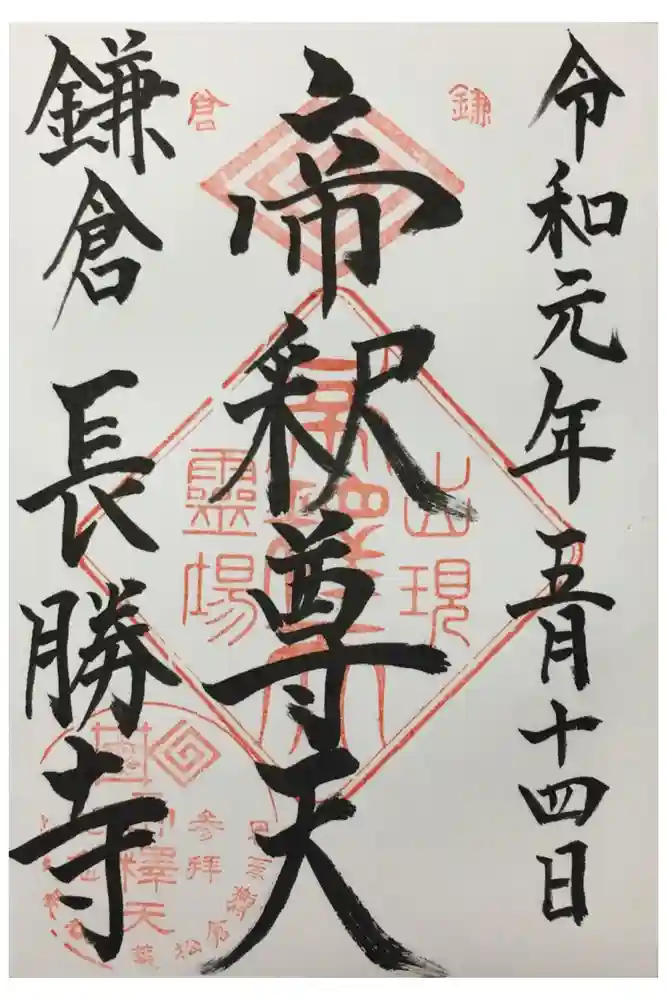 令和元年五月十四日
鎌倉
帝釈尊天
出現
霊場
鎌倉 長勝寺
参拝